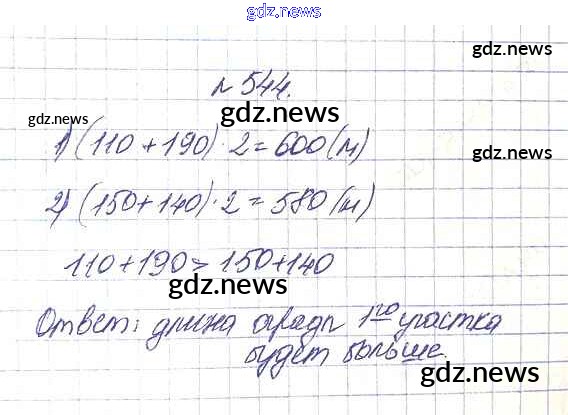 gdz.news
gdz.news
№ 544.
gdz.news
gdz.news
1) (110 + 190) · 2 = 600 (м)
2) (150 + 140) · 2 = 580 (м)
110 + 190 > 150 + 140
gdz.news
Ответ: длина 1го участка
будет больше.
gdz.news